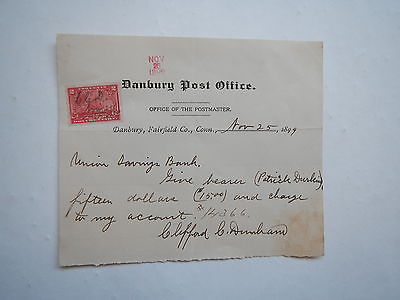 NOV
25
Danbury Post Office.
OFFICE OF THE POSTMASTER.
Danbury, Fairfield Co., Conn., Nov 25, 1899
Union Savings Bank.
Give bearer (Patrick Durkin)
fifteen dollars ($15.00) and charge
to my account.
Clifford C. Dunham